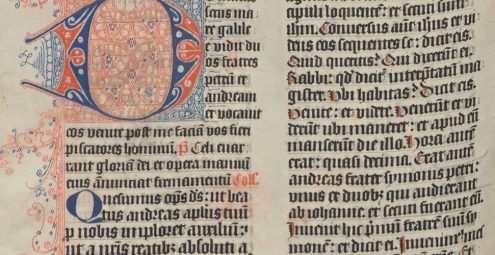 D
iscus ma
re galile
e vidit du
os fratres
petrū et
andream
et vocauit
eos venite post me faciam vos fieri
piscatores hominū. p̄ Celi enar
rant gloriam dei et opera manuū
eius annunciat firmamentū Coll.
Quesumus om̄ps ds: ut bea
tus andreas aplus tuum
p nobis imploret auxiliū:
ut a nr̄is reatibus absoluti a
cipli loquentē: et secuti sunt
ihm. Conuersus autē ihūs et vi
dens eos sequentes se: dicit eis.
Quid queritis? Qui dixerūt ei.
Rabbi: qd dicit interpretatū ma
gister. Vbi habitas? Dicit eis.
Venite: et videte. Venerūt et vi
derūt ubi maneret: et apud eū
manserūt die illo. Hora autē
erat: quasi decima. Erat autē
andreas frater symonis petri:
vnus ex duobz qui audierant
ab iohanne: et secuti fuerant eū.
Inuenit hic pmū fratrē suū sy
monē: et dicit ei. Inuenim